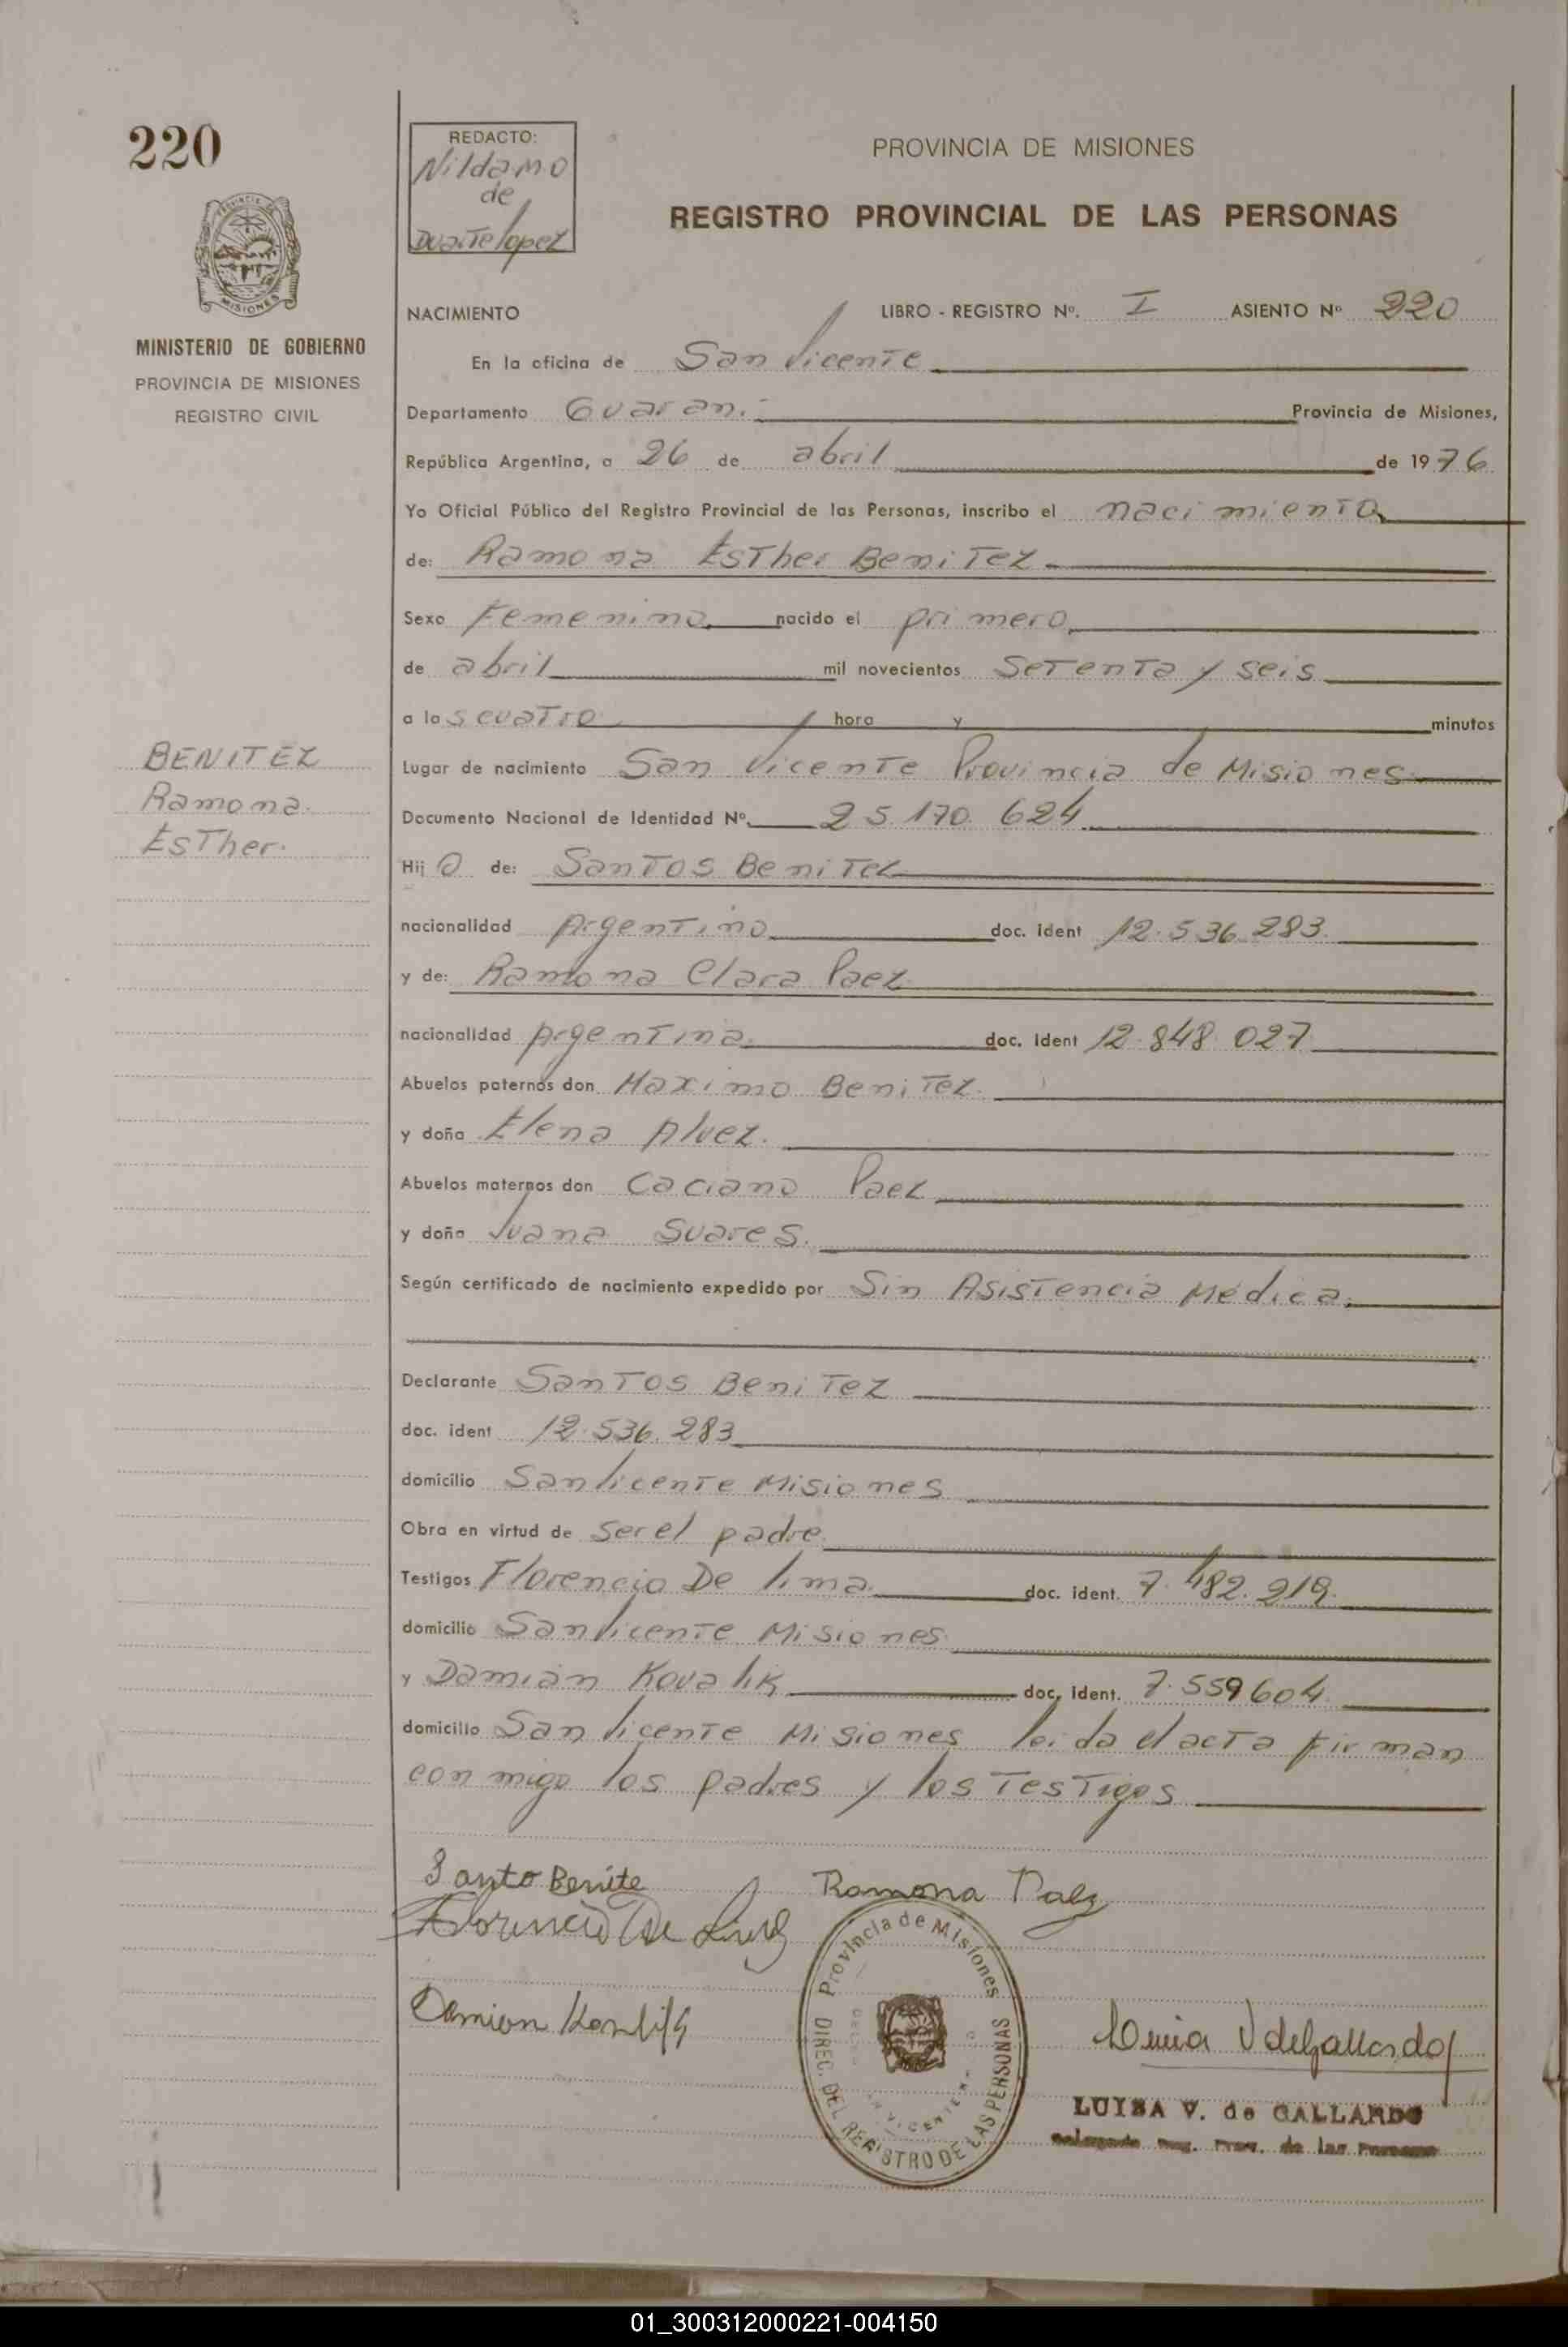 220
PROVINCIA DE
MISIONES
MINISTERIO DE GOBIERNO
PROVINCIA DE MISIONES
REGISTRO CIVIL
BENITEZ
Ramona.
Esther.
REDACTO:
Nilda M. O
de
Duarte Lopez
PROVINCIA DE MISIONES
REGISTRO PROVINCIAL DE LAS PERSONAS
NACIMIENTO LIBRO - REGISTRO Nº. I ASIENTO Nº 220
En la oficina de San Vicente
Departamento Guaraní Provincia de Misiones,
República Argentina, a 26 de abril de 1976
Yo Oficial Público del Registro Provincial de las Personas, inscribo el nacimiento
de: Ramona Esther Benitez
Sexo Femenino nacido el primero
de abril mil novecientos setenta y seis
a las cuatro hora y minutos
Lugar de nacimiento San Vicente Provincia de Misiones
Documento Nacional de Identidad Nº. 25.170.624
Hijo de: Santos Benitez
nacionalidad Argentino doc. ident 12.536.283
y de: Ramona Clara Paez
nacionalidad Argentina doc. ident 12.848.027
Abuelos paternos don Maximo Benitez.
y doña Elena Alvez.
Abuelos maternos don Caciano Paez
y doña Juana Suares.
Según certificado de nacimiento expedido por Sin Asistencia Médica.
Declarante Santos Benitez
doc. ident 12.536.283
domicilio San Vicente Misiones
Obra en virtud de ser el padre
Testigos Florencio De lima doc. ident. 7.482.219.
domicilio San Vicente Misiones
y Damián Kovalik doc. ident. 7.559604.
domicilio San Vicente Misiones leida el acta firman
conmigo los padres y los testigos
Santo Benite Ramona Paez
Florencio De Lima
Provincia de Misiones
DIREC. DEL REGISTRO DE LAS PERSONAS
LUISA V. de GALLARDO
Delegada Reg. Prov. de las Personas
01_300312000221-004150